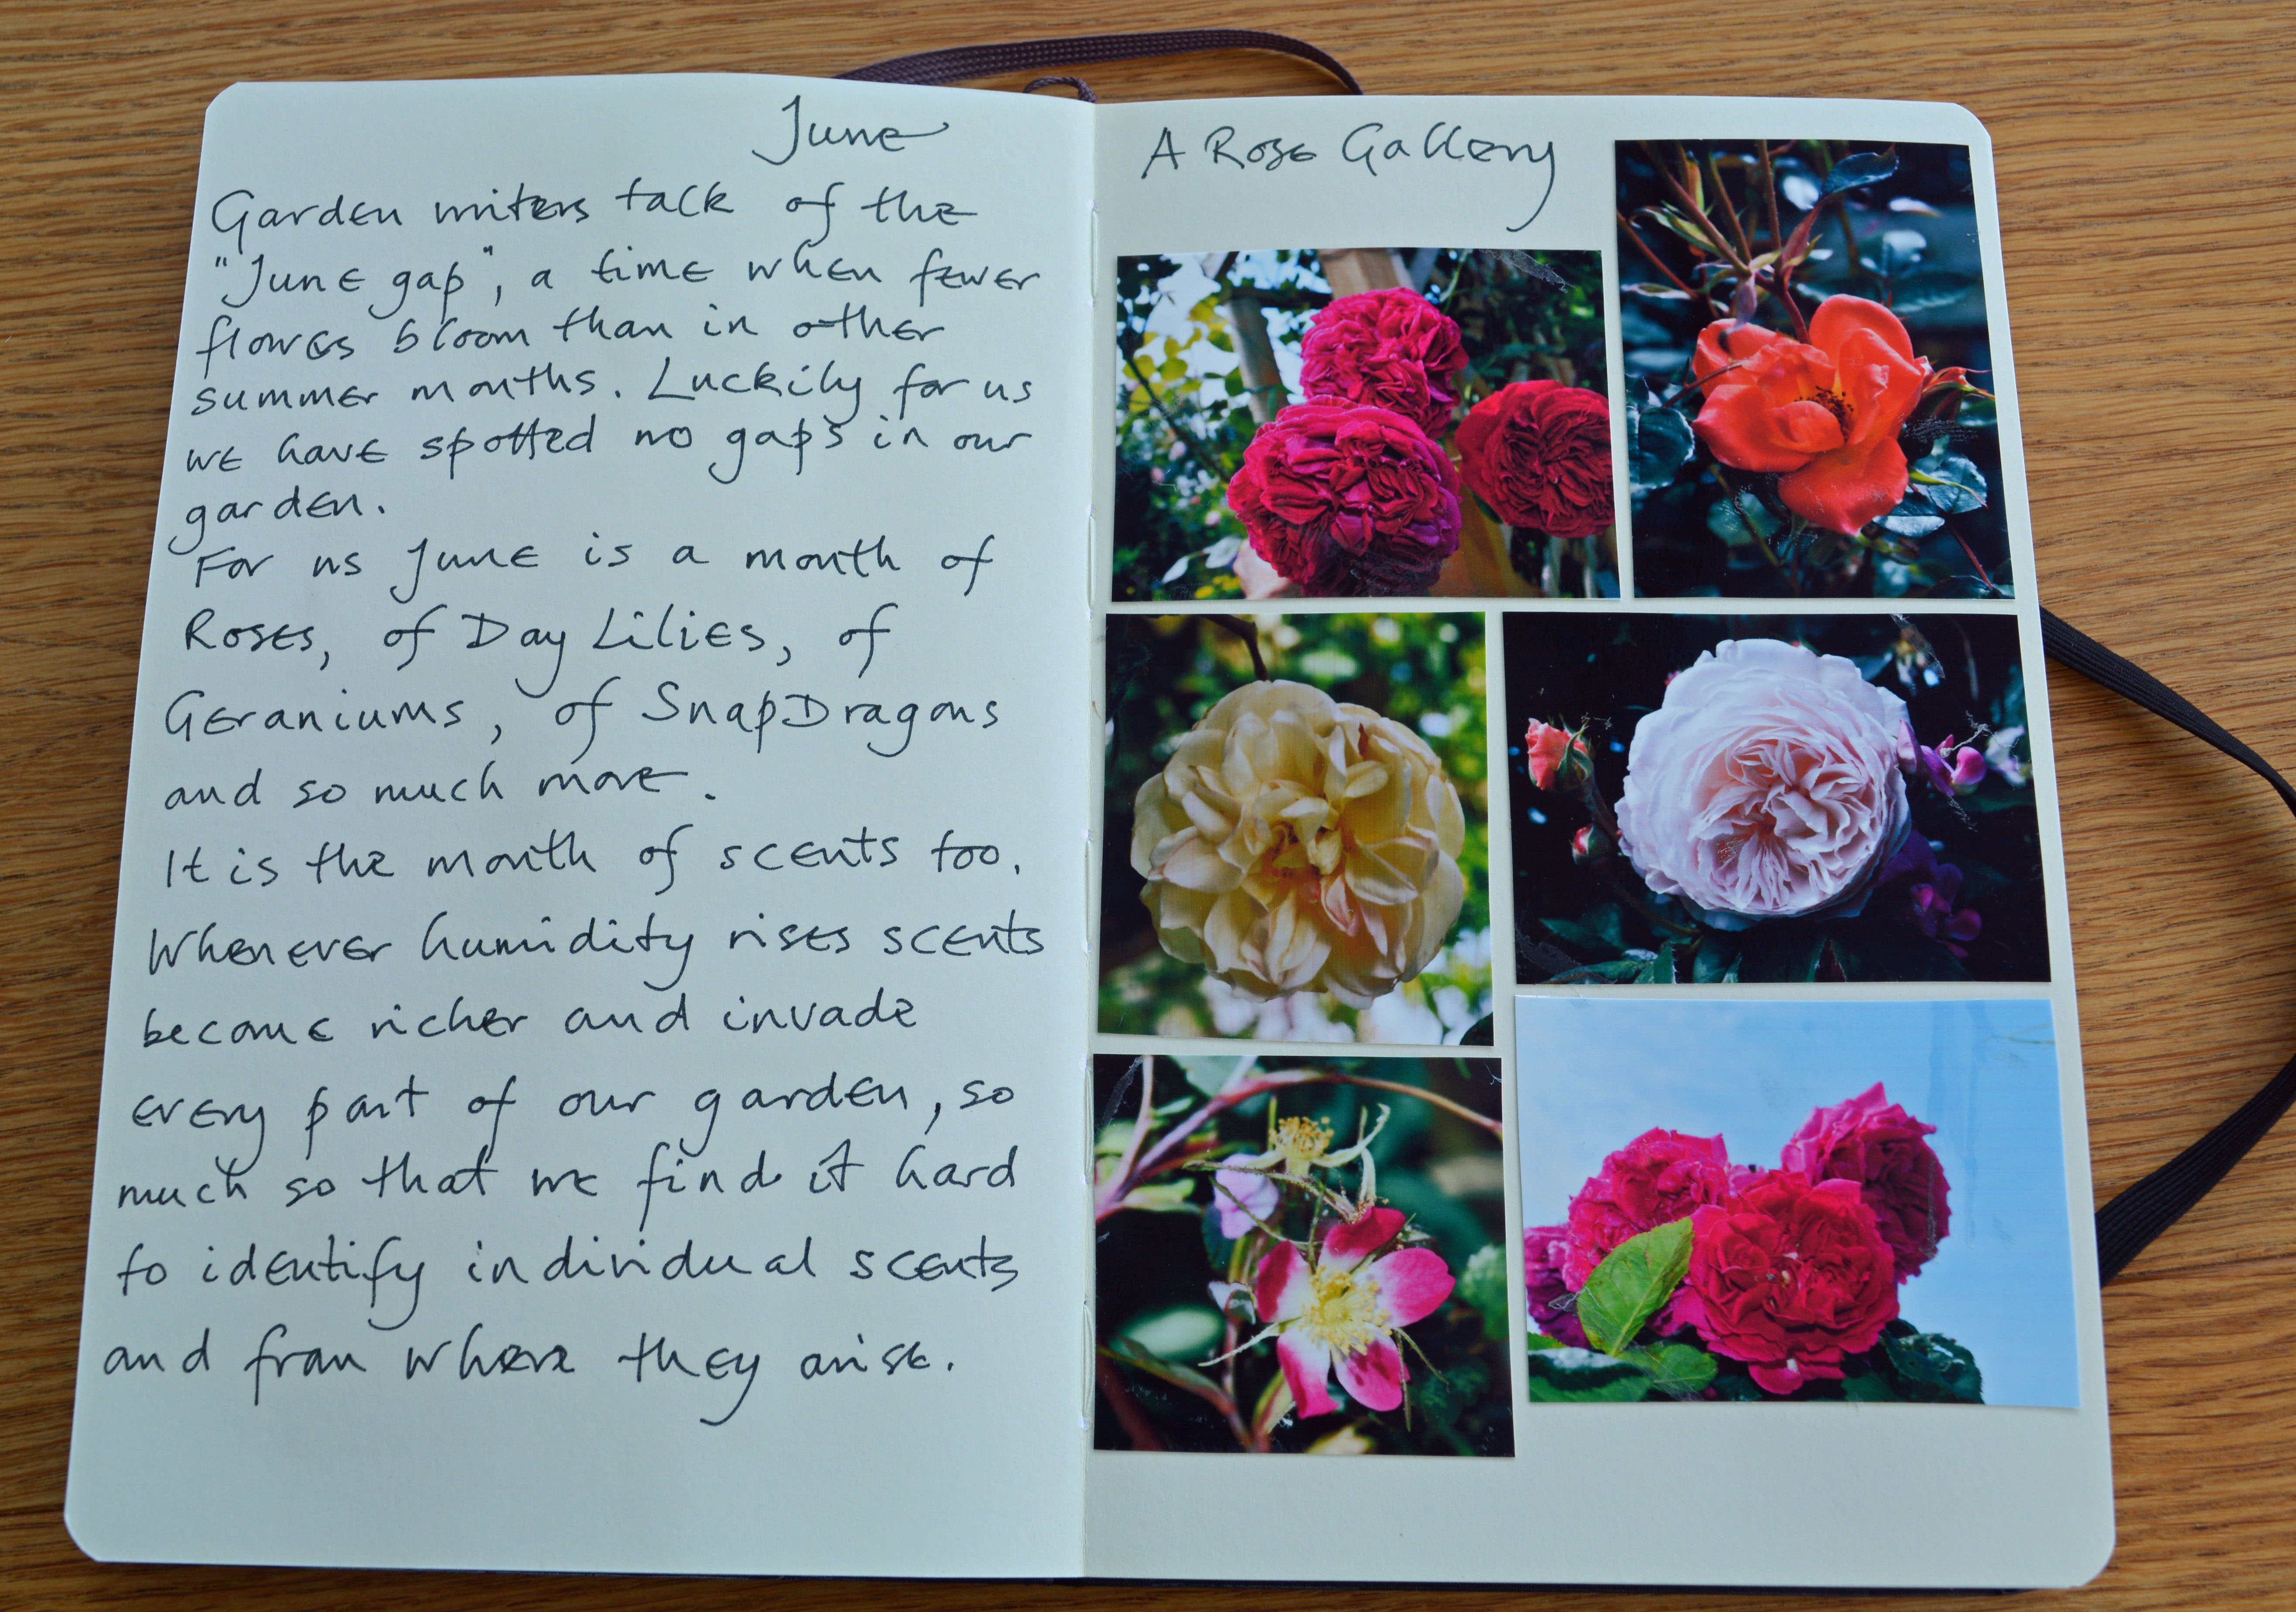 June
Garden writers talk of the
"June gap", a time when fewer
flowers bloom than in other
summer months. Luckily for us
we have spotted no gaps in our
garden.
For us June is a month of
Roses, of Day Lilies, of
Geraniums, of SnapDragons
and so much more.
It is the month of scents too.
Whenever humidity rises scents
become richer and invade
every part of our garden, so
much so that we find it hard
to identify individual scents
and from where they arise.
A Rose Gallery